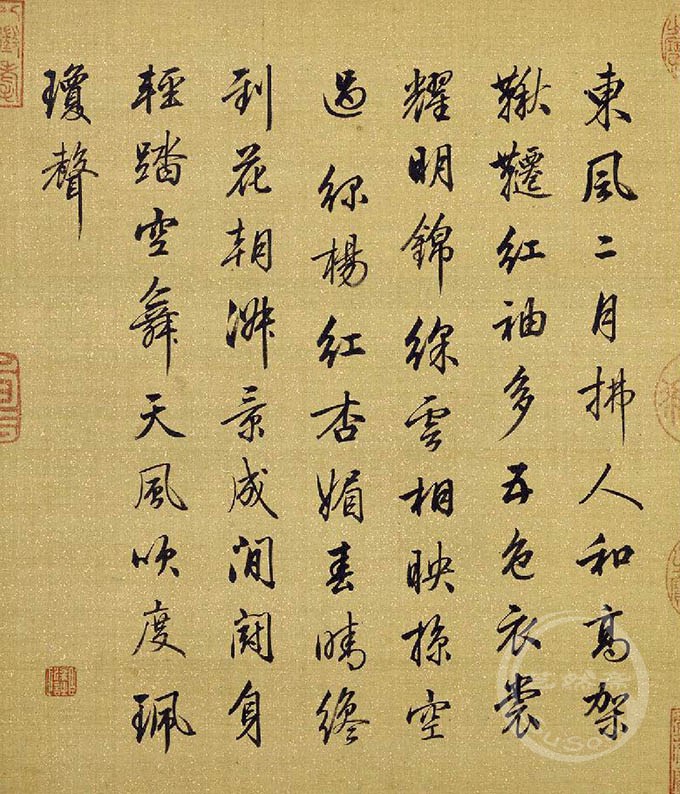 東風二月拂人和高架
鞦韆紅袖多五色衣裳
耀明錦綵雲相映掠空
過 綠楊紅杏媚春晴纔
到花朝淑景成閒鬪身
輕踏空舞天風吹度珮
瓊聲